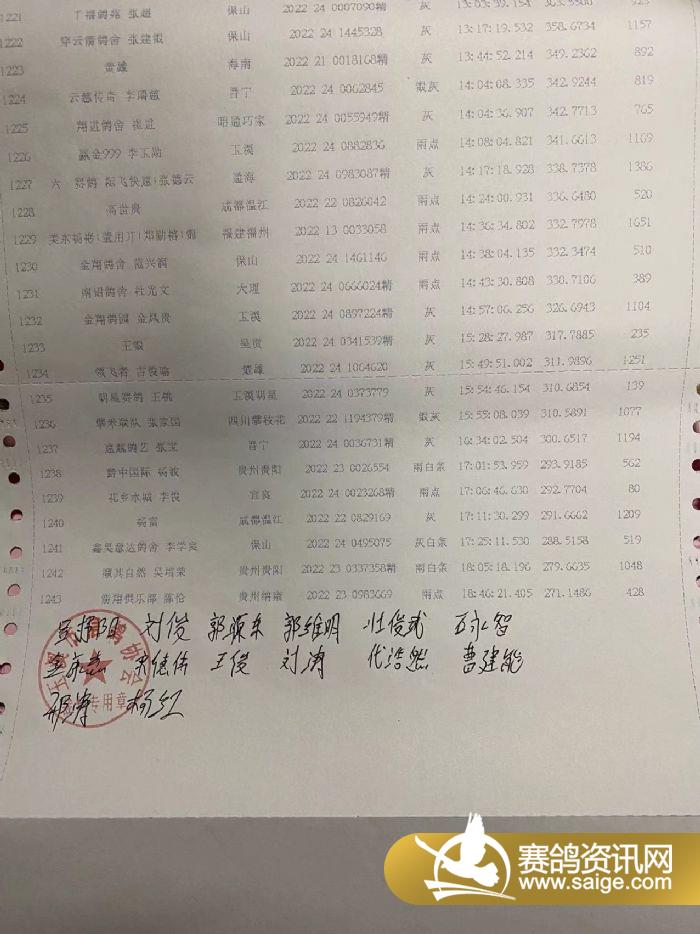 1221 千禧鸽苑 张超 保山 2022 24 0007090精 灰 13:03:39.154 923
1222 穿云箭鸽舍 张建银 保山 2022 24 1445328 灰 13:17:19.532 358.6734 1157
1223 雷雄 海南 2022 21 0018168精 灰 13:44:52.214 349.2362 892
1224 云慧传奇 李瑞慧 晋宁 2022 24 0062845 银灰 14:04:08.335 342.9244 819
1225 翔进鸽舍 崔进 昭通巧家 2022 24 0055949精 灰 14:04:36.907 342.7713 765
1226 赢金999 李玉勋 玉溪 2022 24 0882836 雨点 14:08:04.821 341.6613 1169
1227 六 赛鸽 际飞快递:张德云 通海 2022 24 0983087精 灰 14:17:18.928 338.7378 1386
1228 高世贵 成都温江 2022 22 0826042 雨点 14:24:00.931 336.6480 520
1229 福建福州 2022 13 0033058 雨点 14:36:34.802 332.7978 1651
1230 金翔鸽舍 范兴润 保山 2022 24 1461146 雨点 14:38:04.135 332.3474 510
1231 南诏鸽舍 杜光文 大理 2022 24 0666024精 雨点 14:43:30.808 330.7106 389
1232 金翔鸽园 金凤贵 玉溪 2022 24 0897224精 灰 14:57:06.256 326.6943 1104
1233 王毅 呈贡 2022 24 0341539精 灰 15:28:27.987 317.7885 235
1234 领飞者 吉俊瑜 楚雄 2022 24 1064620 灰 15:49:51.002 311.9896 1251
1235 明星赛鸽 王桃 玉溪明星 2022 24 0373779 灰 15:54:46.154 310.6854 139
1236 攀米联队 张家国 四川攀枝花 2022 22 1194379精 银灰 15:55:08.039 310.5891 1077
1237 逸飙鸽艺 张宝 晋宁 2022 24 0036731精 灰 16:34:02.504 300.6517 1194
1238 黔中国际 杨波 贵州贵阳 2022 23 0026554 雨白条 17:01:53.959 293.9185 562
1239 花乡水城 李俊 宜良 2022 24 0023268精 雨点 17:06:46.630 292.7704 80
1240 杨富 成都温江 2022 22 0829169 灰 17:11:30.299 291.6662 1209
1241 鑫昊意达鸽舍 李学良 保山 2022 24 0495075 灰白条 17:25:11.530 288.5158 519
1242 顺其自然 吴培荣 贵州贵阳 2022 23 0337358精 雨白条 18:05:18.196 279.6635 1048
1243 俱乐部 陈伦 贵州纳雍 2022 23 0983669 雨点 18:46:21.405 271.1486 428
刘俊 郭顺东 郭维明 杜俊武
宋德伟 王俊 刘涛 代浩然 曹建能
杨红
专用章
赛鸽资讯网
www.saige.com